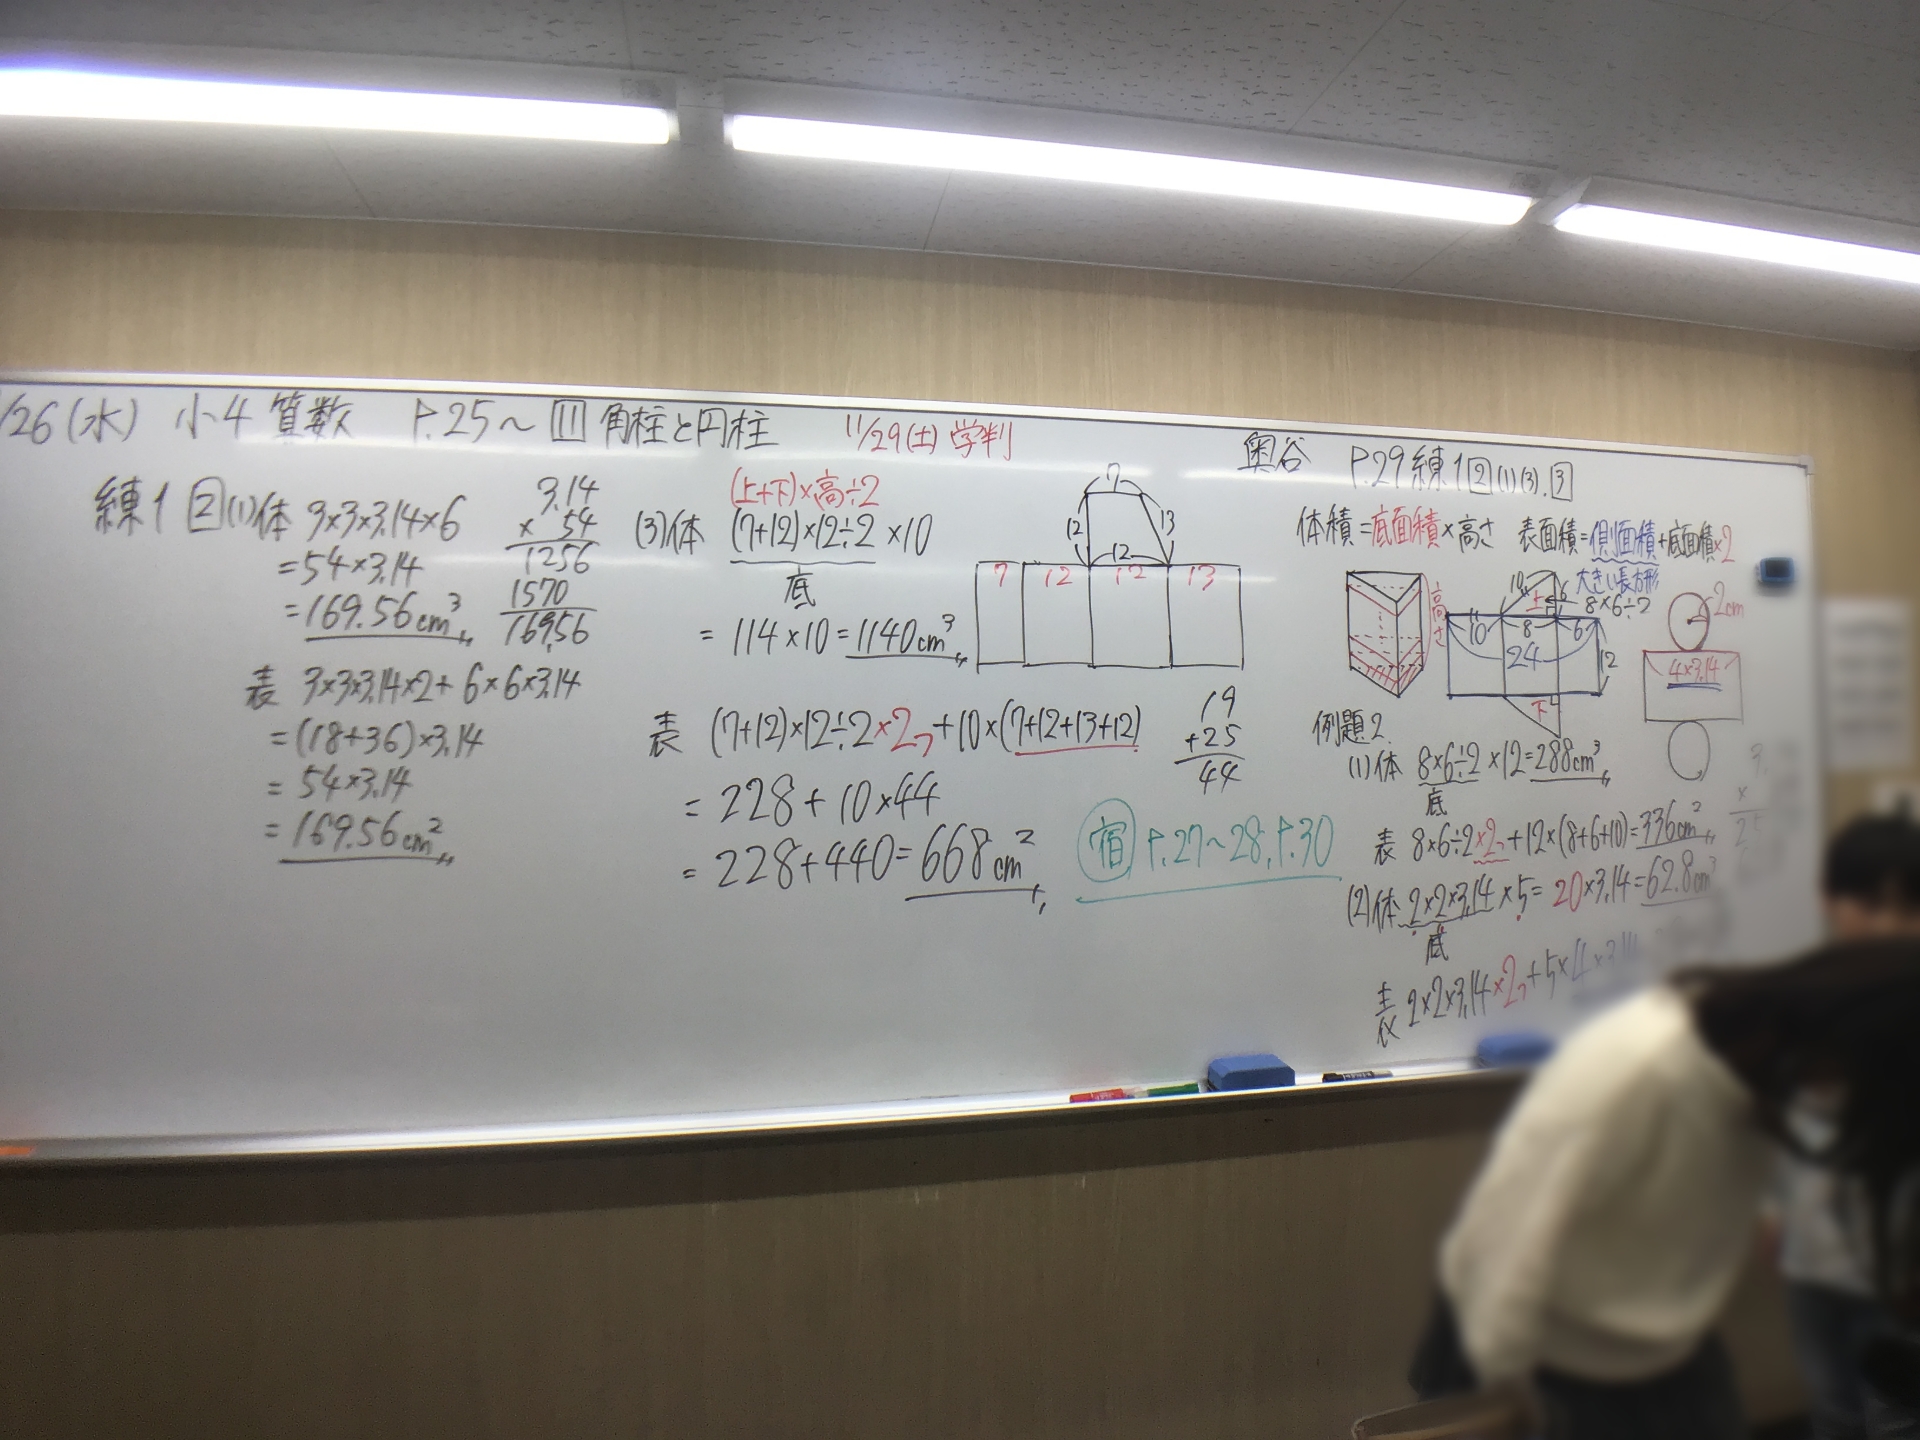 /26(水) 小4 算数 P.25〜 11 角柱と円柱 11/29(土) 学判
練1 2(1)体 3×3×3.14×6
=54×3.14
=169.56cm³
3.14
× 54
1256
1570
169.56
表 3×3×3.14×2+6×6×3.14
=(18+36)×3.14
=54×3.14
=169.56cm²
(上+下)×高÷2
(3)体 (7+12)×12÷2×10
底
=114×10=1140cm³
7
12
13
12
7 12 12 13
表 (7+12)×12÷2×2+10×(7+12+13+12)
=228+10×44
=228+440=668cm²
19
+25
44
宿 P.27〜28,P.30
奥谷 P.29練1 2(1)(3).3
体積=底面積×高さ 表面積=側面積+底面積×2
大きい長方形
高さ
10 上 6
8×6÷2
10 8 6
24
12
下
2cm
4×3.14
例題2
(1)体 8×6÷2×12=288cm³
底
表 8×6÷2×2+12×(8+6+10)=336cm²
(2)体 2×2×3.14×5=20×3.14=62.8cm³
底
表 2×2×3.14×2+5×4×3.14